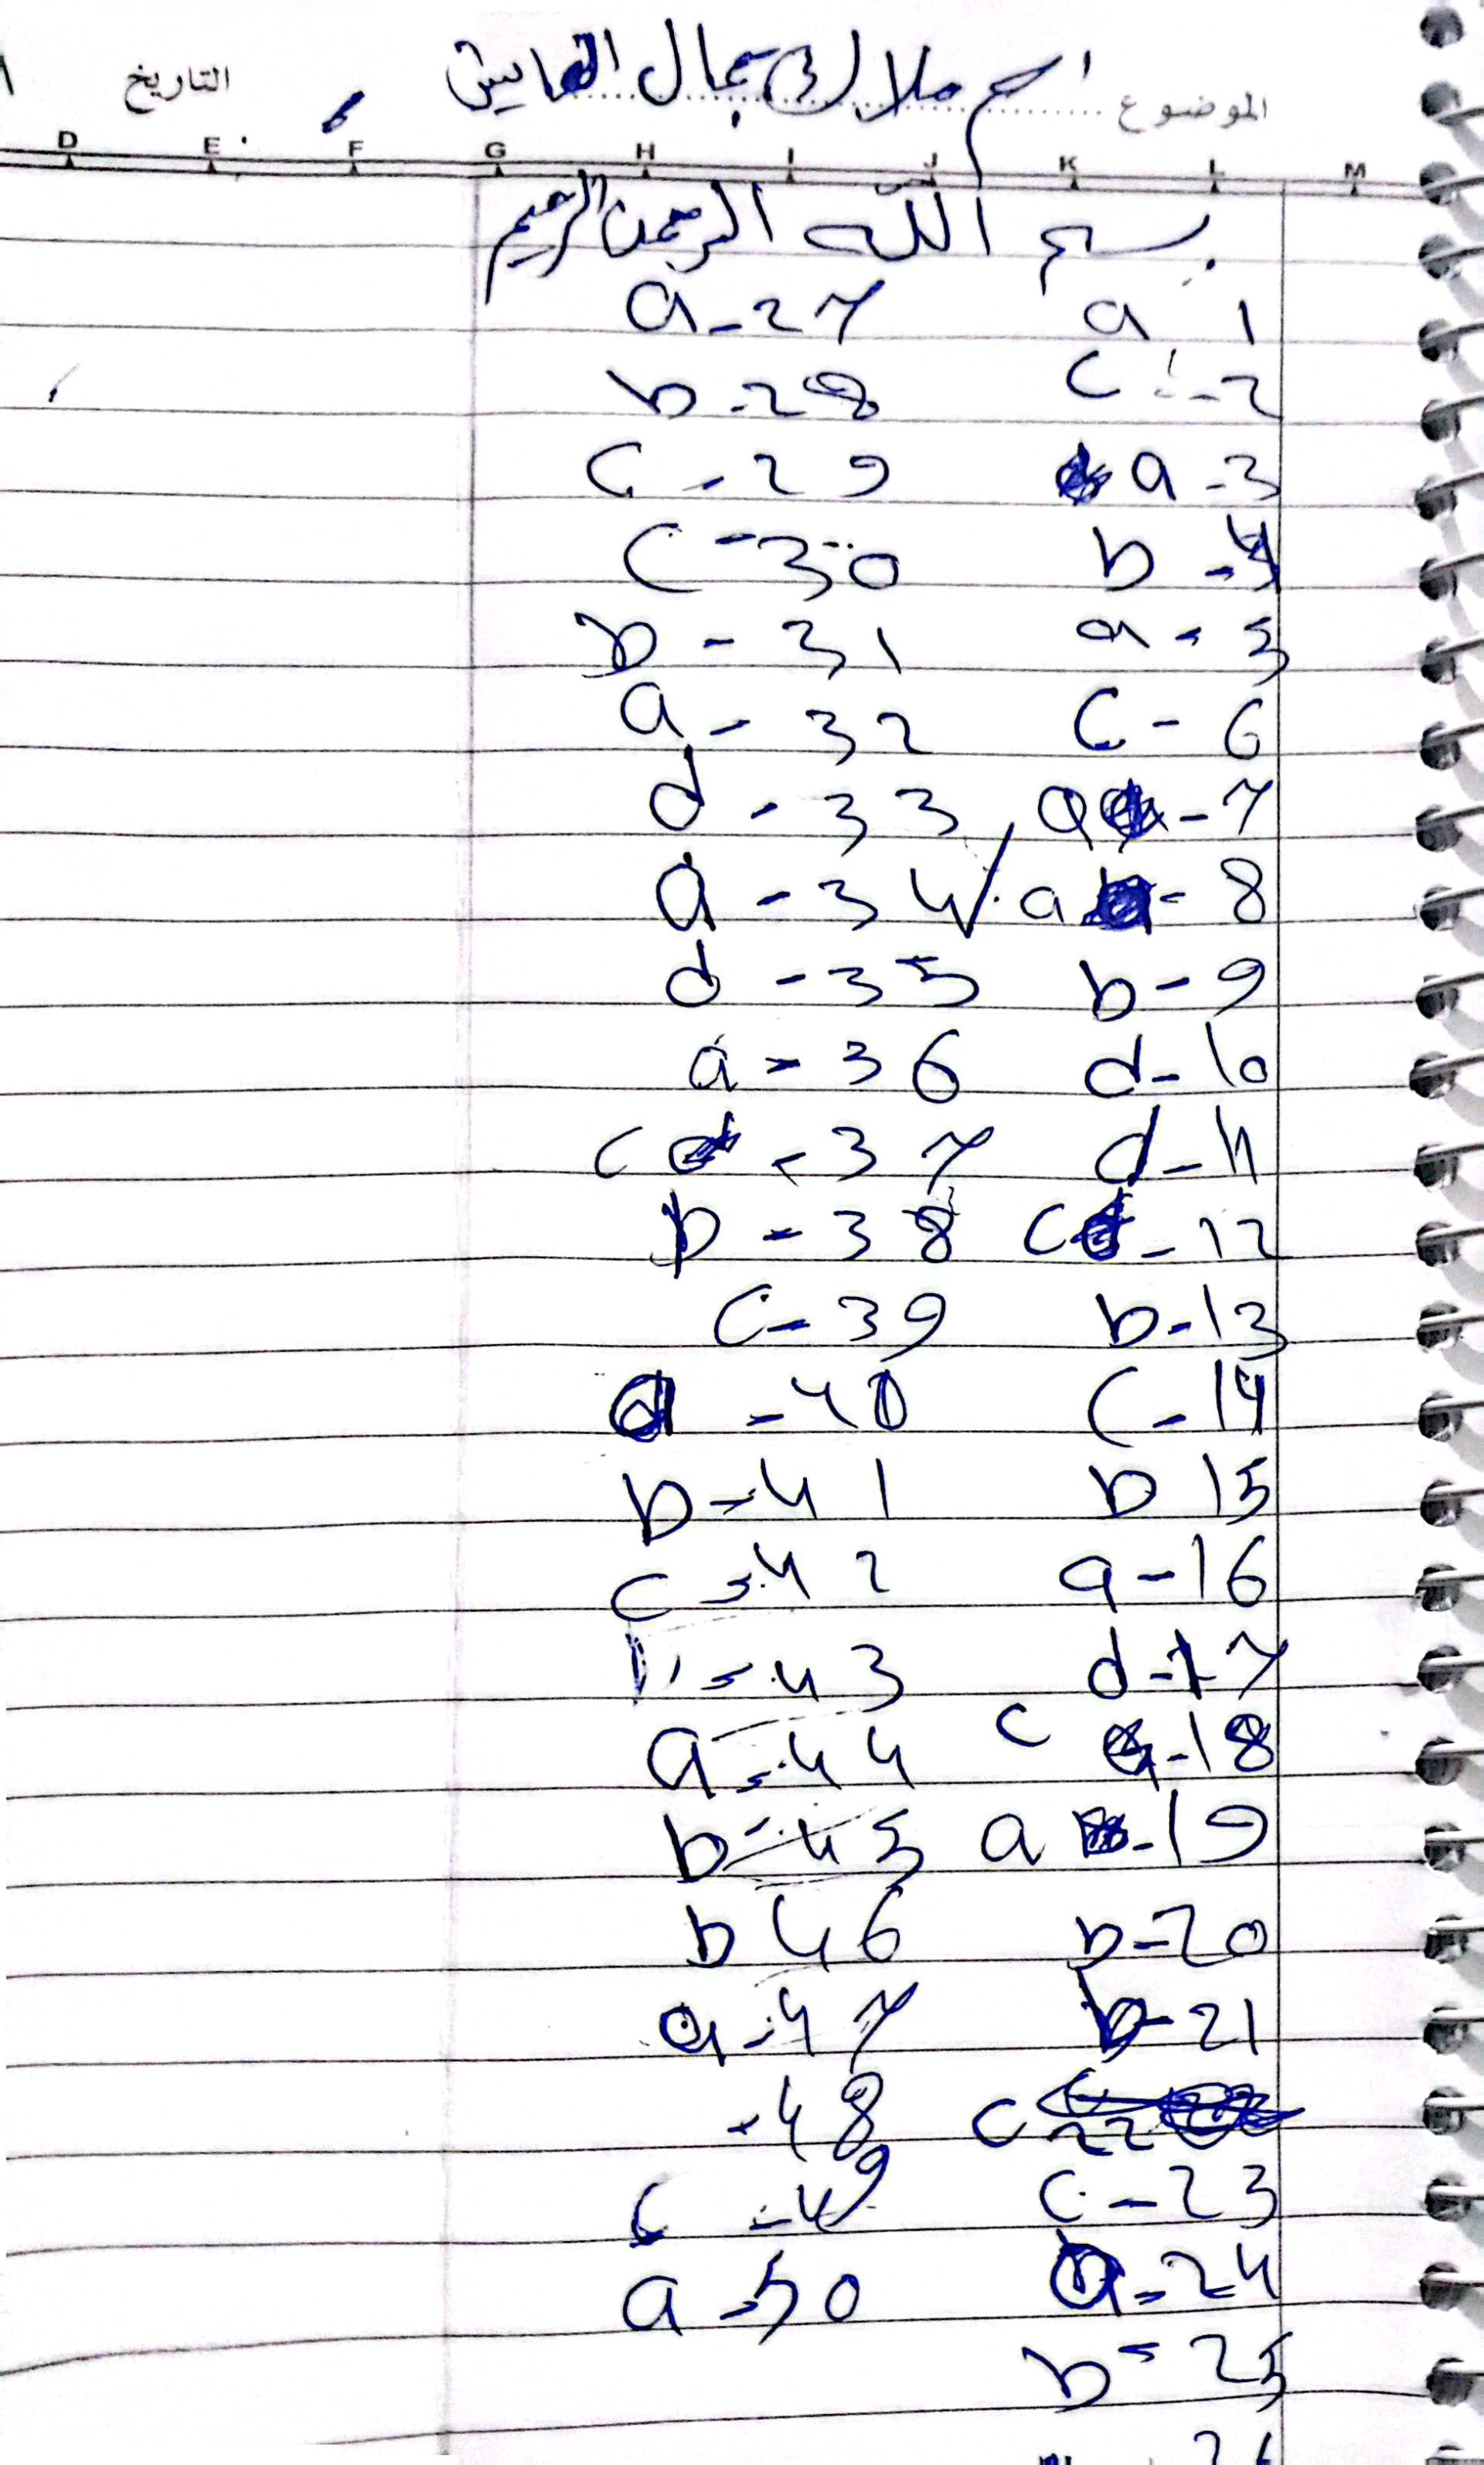 الموضوع اسم ملاك جمال العايش التاريخ
D E F G H I J K L M
بسم الله الرحمن الرحيم
a 1
c - 2
a - 3
b - 4
a - 5
c - 6
a - 7
a - 8
b - 9
d - 10
d - 11
c - 12
b - 13
c - 14
b 15
a - 16
d - 17
c - 18
a - 19
b - 20
b - 21
c 22
c - 23
a - 24
b - 25
26
a - 27
b - 28
c - 29
c - 30
b - 31
a - 32
d - 33
a - 34
d - 35
a - 36
c - 37
b - 38
c - 39
d - 40
b - 41
c - 42
- 43
a - 44
b - 45
b 46
a - 47
- 48
c - 49
a - 50